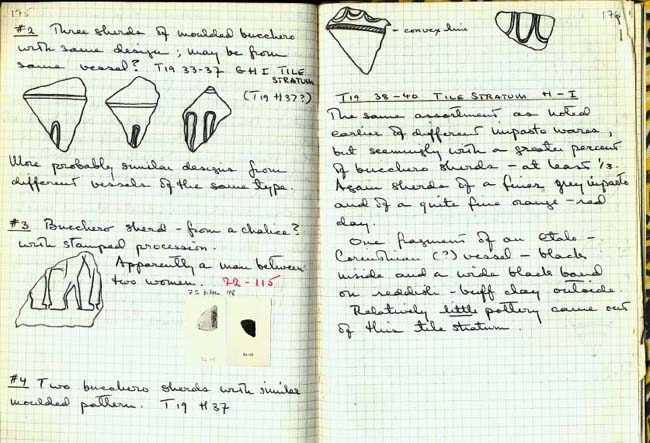 175
#2 Three sherds of moulded bucchero
with same design; may be from
same vessel? T19 33-37 GHI TILE
STRATUM
(T19 H37?)
More probably similar designs from
different vessels of the same type.
#3 Bucchero sherd - from a chalice?
with stamped procession.
Apparently a man between
two women. 72-115
#4 Two bucchero sherds with similar
moulded pattern. T19 H37
176
- convex line
T19 38-40 TILE STRATUM H-I
The same assortment as noted
earlier of different impasto wares,
but seemingly with a greater percent
of bucchero sherds - at least 1/3.
Again sherds of a finer, grey impasto
and of a quite fine orange-red
clay.
One fragment of an Etalo-
Corinthian (?) vessel - black
inside and a wide black band
on reddish-buff clay outside.
Relatively little pottery came out
of this tile stratum.